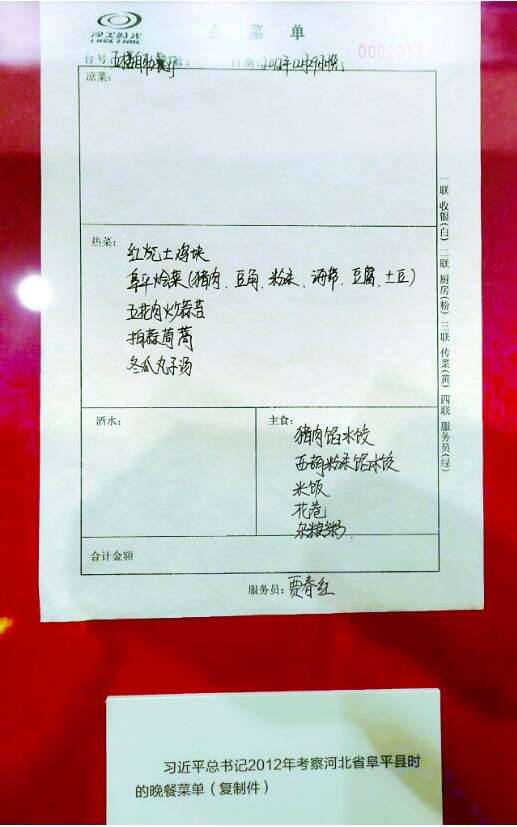 渔工时光
LAKE TIME
点 菜 单
0000018
台号：五楼自助餐厅
日期：2012年12月29日晚
凉菜：
热菜：
红烧土鸡块
阜平烩菜(猪肉、豆角、粉条、海带、豆腐、土豆)
五花肉炒蒜苔
拍蒜茼蒿
冬瓜丸子汤
酒水：
主食：
猪肉馅水饺
西葫粉条馅水饺
米饭
花卷
杂粮粥
合计金额
服务员：贾春红
一联 收银(白) 二联 厨房(粉) 三联 传菜(黄) 四联 服务员(绿)
习近平总书记2012年考察河北省阜平县时
的晚餐菜单（复制件）